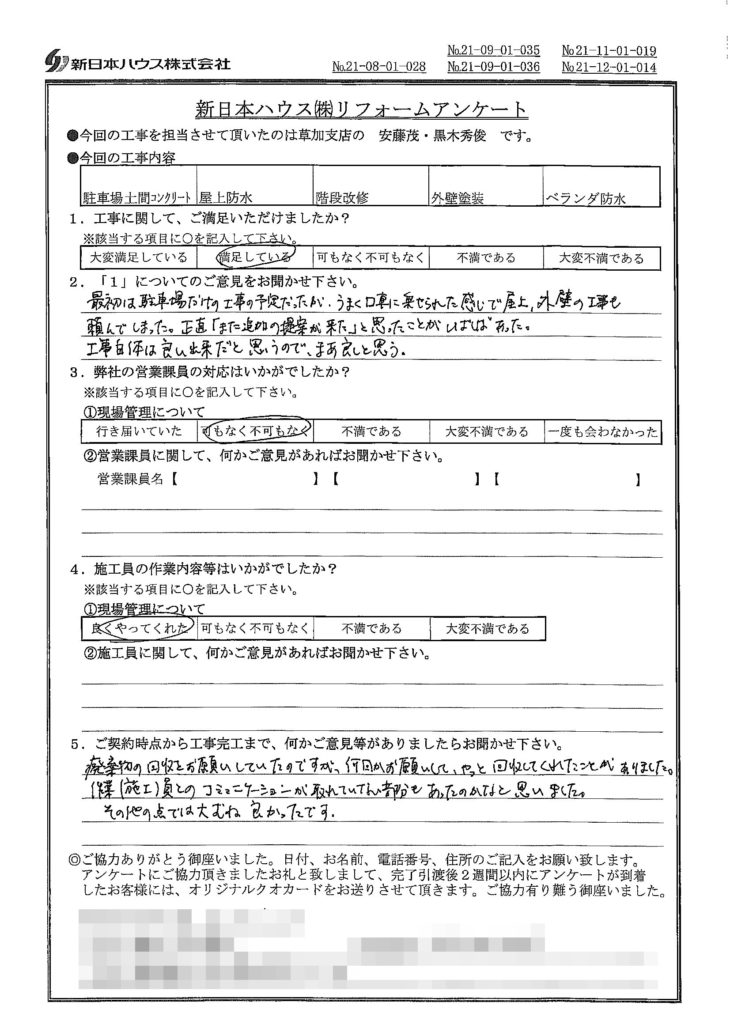 新日本ハウス株式会社
No.21-08-01-028
No.21-09-01-035 No.21-11-01-019
No.21-09-01-036 No.21-12-01-014
新日本ハウス㈱リフォームアンケート
●今回の工事を担当させて頂いたのは草加支店の 安藤茂・黒木秀俊 です。
●今回の工事内容
駐車場土間コンクリート 屋上防水 階段改修 外壁塗装 ベランダ防水
1．工事に関して、ご満足いただけましたか？
※該当する項目に○を記入して下さい。
大変満足している 満足している 可もなく不可もなく 不満である 大変不満である
2．「1」についてのご意見をお聞かせ下さい。
最初は駐車場だけの工事の予定だったが、うまく口車に乗せられた感じで屋上，外壁の工事も
頼んでしまった。正直「また追加の提案が来た」と思ったことがしばしばあった。
工事自体は良い出来だと思うので、まあ良しと思う。
3．弊社の営業課員の対応はいかがでしたか？
※該当する項目に○を記入して下さい。
①現場管理について
行き届いていた 可もなく不可もなく 不満である 大変不満である 一度も会わなかった
②営業課員に関して、何かご意見があればお聞かせ下さい。
営業課員名【 】【 】【 】
4．施工員の作業内容等はいかがでしたか？
※該当する項目に○を記入して下さい。
①現場管理について
良くやってくれた 可もなく不可もなく 不満である 大変不満である
②施工員に関して、何かご意見があればお聞かせ下さい。
5．ご契約時点から工事完工まで、何かご意見等がありましたらお聞かせ下さい。
廃棄物の回収をお願いしていたのですが、何回かお願いして、やっと回収してくれたことがありました。
作業(施工)員とのコミュニケーションが取れていない部分もあったのかなと思いました。
その他の点では大むね良かったです．
◎ご協力ありがとう御座いました。日付、お名前、電話番号、住所のご記入をお願い致します。
アンケートにご協力頂きましたお礼と致しまして、完了引渡後2週間以内にアンケートが到着
したお客様には、オリジナルクオカードをお送りさせて頂きます。ご協力有り難う御座いました。